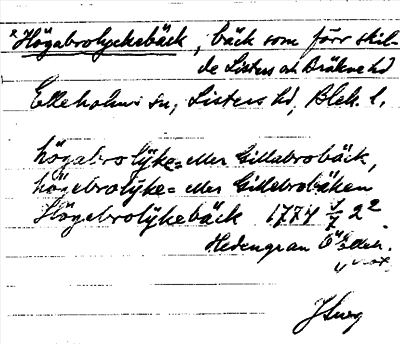 *Högabrolyckebäck, bäck som förr skil-
de Listers och Bräkne hd
Elleholms sn, Listers hd, Blek. l.
högabrolÿke= eller Gillabrobäck,
högebrolÿke= eller Gillebrobäken
Högebrolÿkebäck 1774 5/7 22
Hedengran